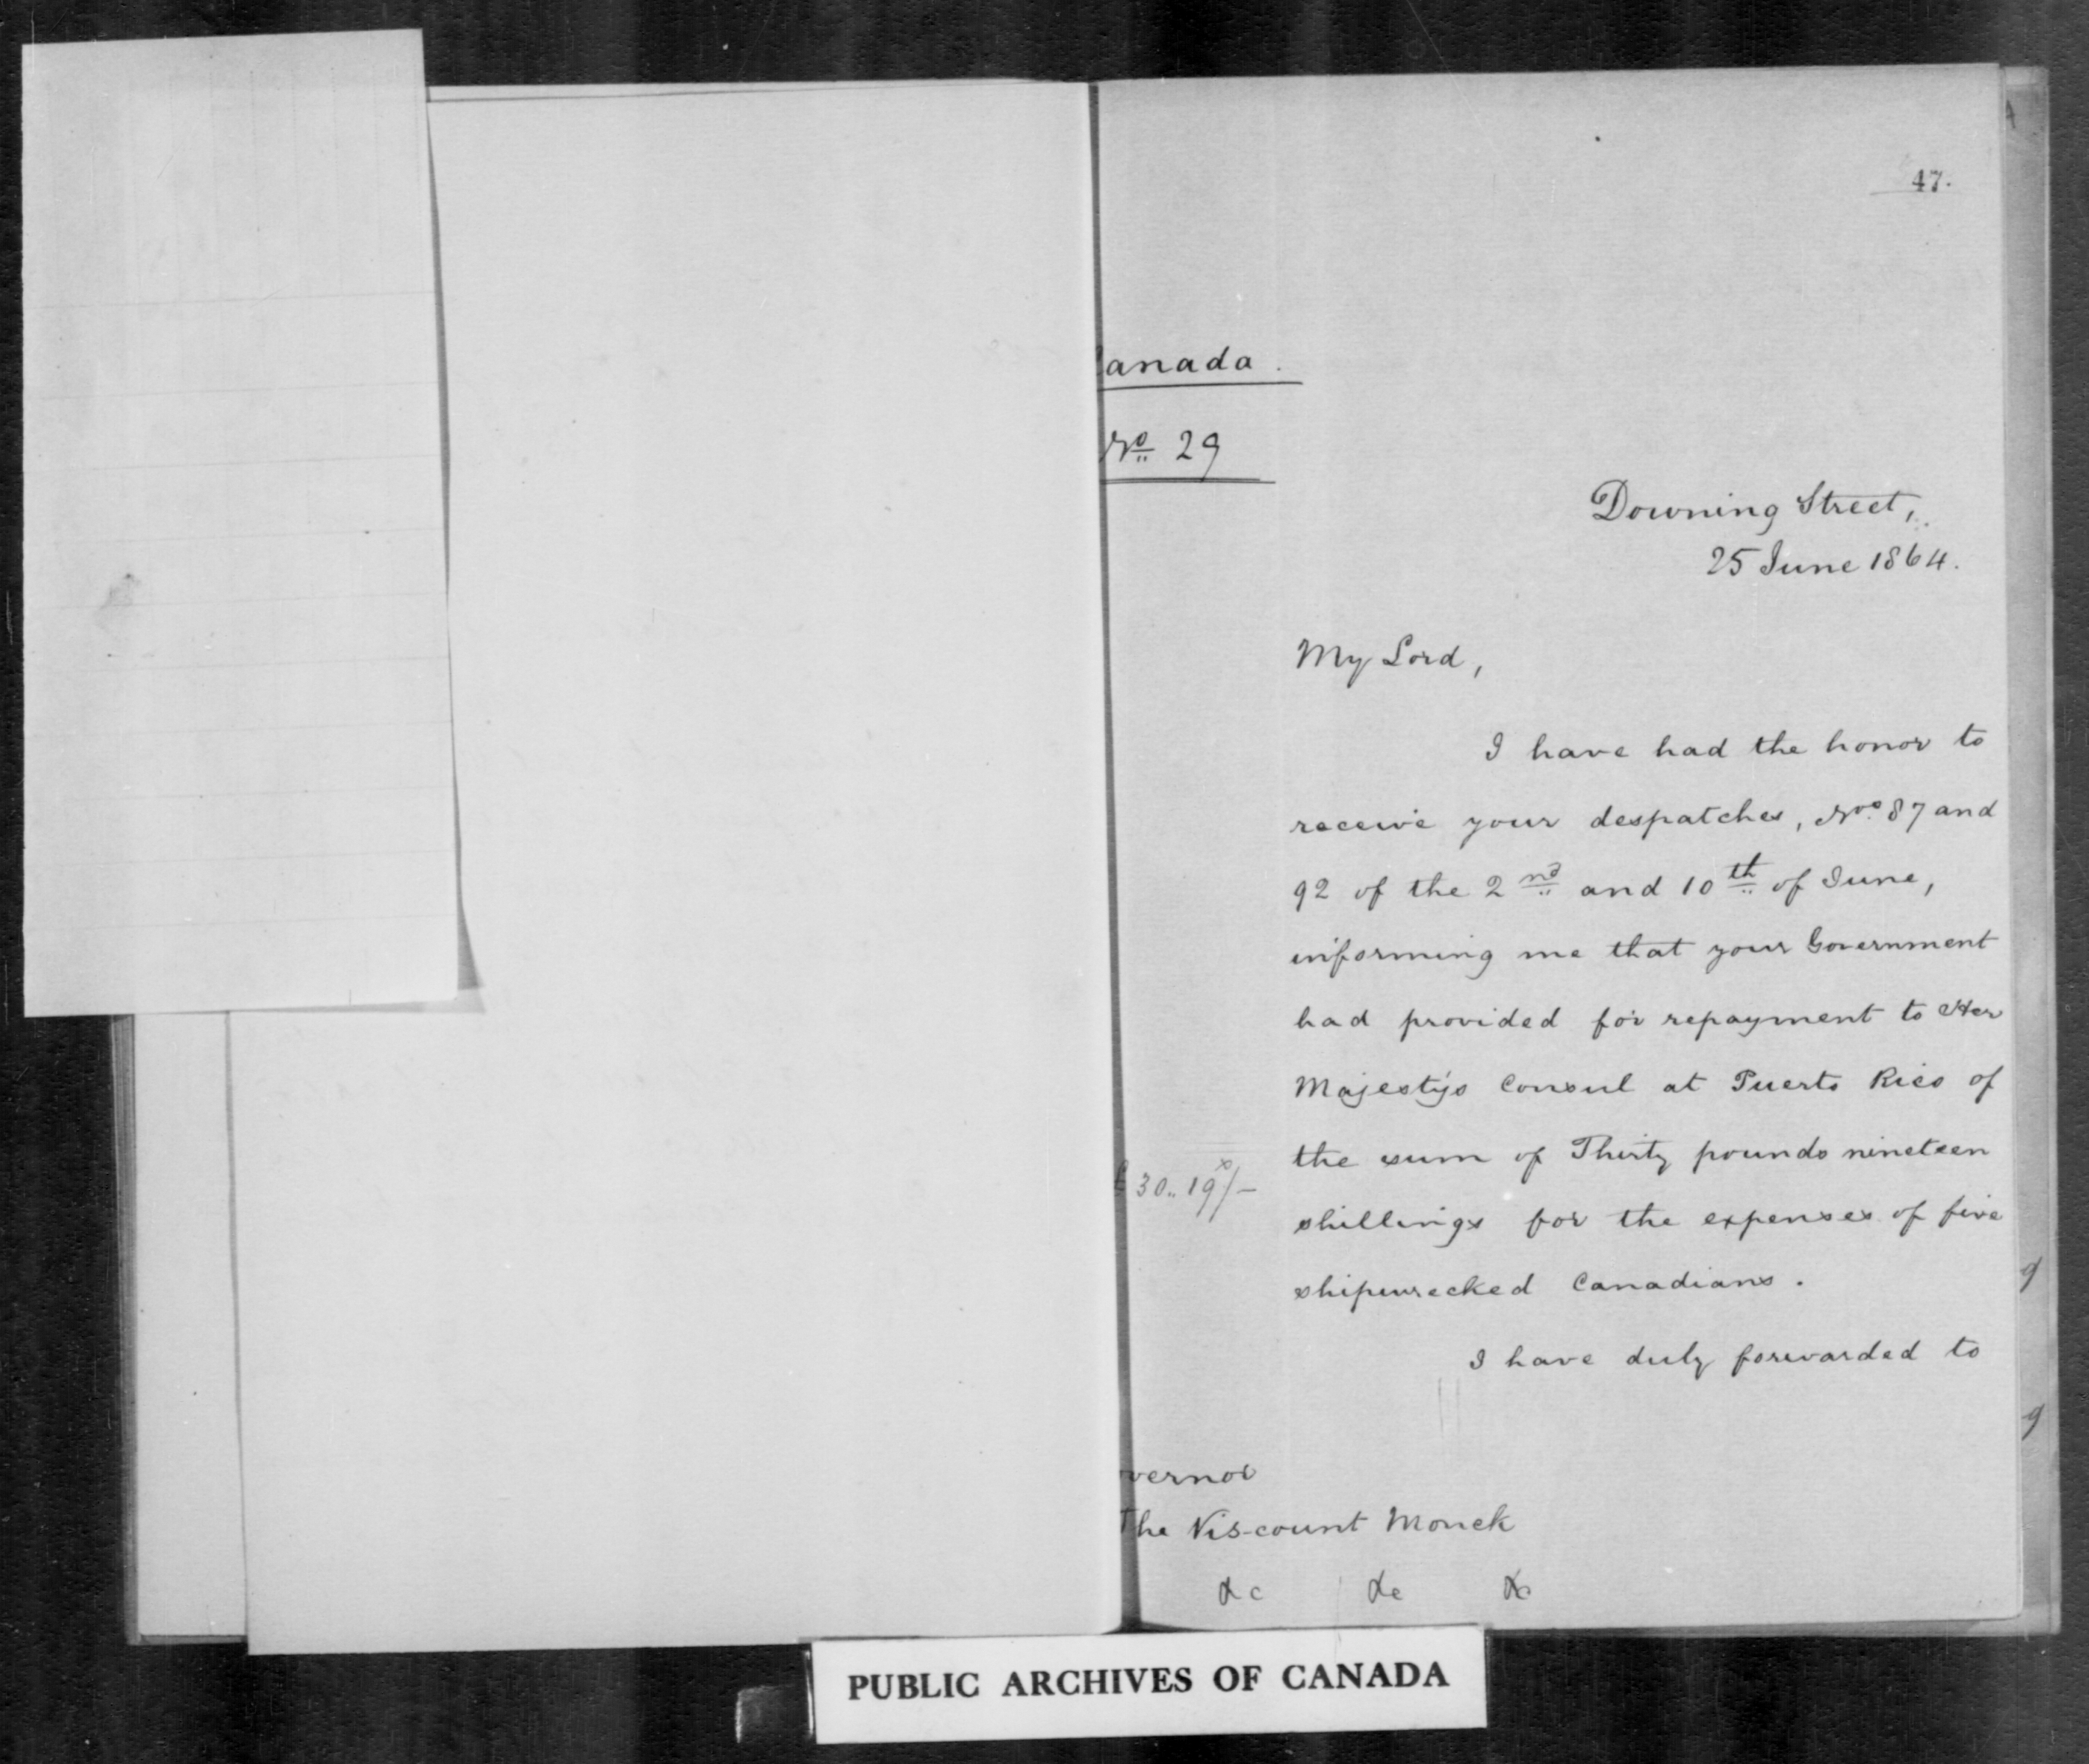 47.
Canada.
No 29
Downing Street,
25 June 1864.
My Lord,
I have had the honor to
receive your despatches, Nos. 87 and
92 of the 2nd and 10th of June,
informing me that your Government
had provided for repayment to Her
Majesty's Consul at Puerto Rico of
the sum of Thirty pounds nineteen
£30..19/-
shillings for the expenses of five
shipwrecked Canadians.
I have duly forwarded to
vernor
The Viscount Monck
&c &c &c
PUBLIC ARCHIVES OF CANADA